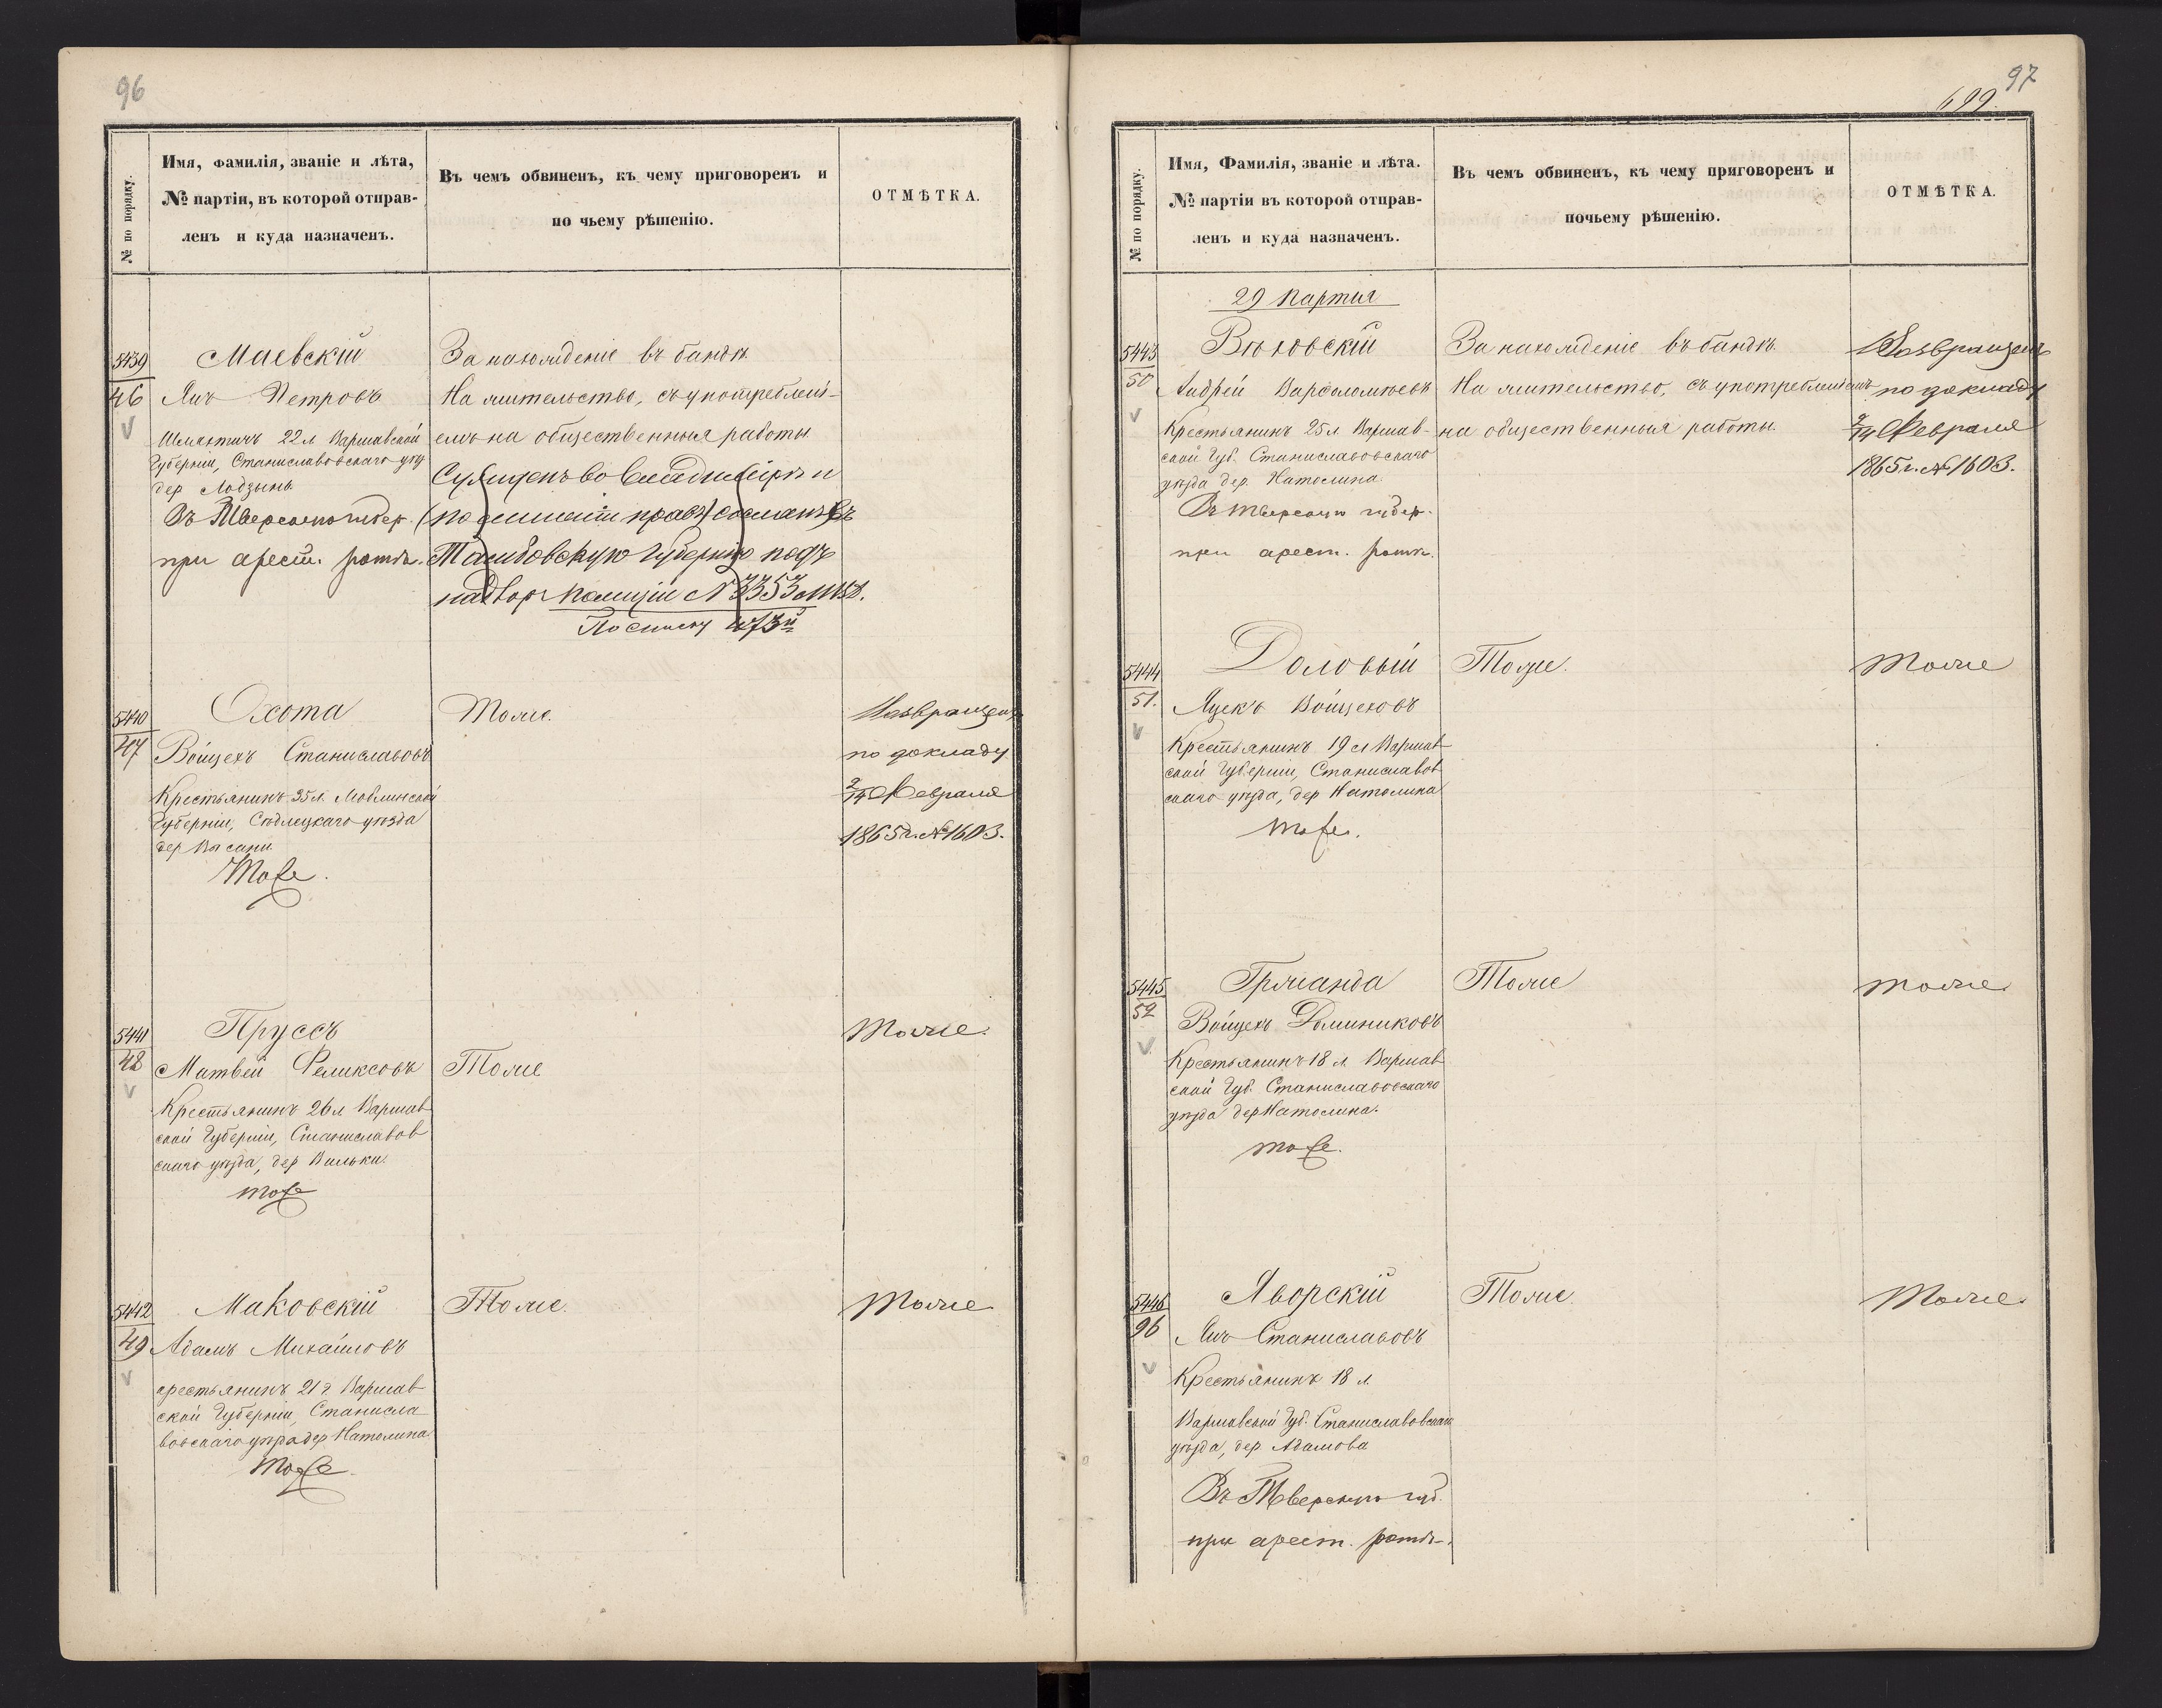 96
№ по порядку.
Имя, фамилія, званіе и лѣта,
№ партіи, въ которой отправ-
ленъ и куда назначенъ.
Въ чемъ обвиненъ, къ чему приговоренъ и
по чьему рѣшенію.
ОТМѢТКА.
5439
46
Маевскій
Янъ Петровъ
Шляхтичъ 22 л Варшавской
Губерніи, Станиславовскаго у
дер Лодзынь
Въ Тверскую губер.
при арест. ротѣ.
За нахожденіе въ бандѣ
На жительство, съ употреблені-
емъ на общественныя работы
Сужденъ во Владимірѣ и
по лишеніи правъ сосланъ въ
Тамбовскую губернію подъ
надзоръ полиціи № 3353
По списку
5440
47
Охота
Войцехъ Станиславовъ
Крестьянинъ 35 л. Люблинской
Губерніи, Сѣдлецкаго уѣзда
дер
Тоже.
Тоже.
Возвращенъ
по докладу
2/14 Февраля
1865 г. № 1603.
5441
48
Пруссъ
Матвей Феликсовъ
Крестьянинъ 26 л Варшав
ской Губерніи, Станиславов
скаго уѣзда, дер Вильки.
тоже
Тоже
Тоже.
5442
49
Маковскій
Адамъ Михайловъ
крестьянинъ 21 г Варшав
ской Губерніи, Станисла
вовскаго уѣзда дер Натолина
Тоже.
Тоже.
Тоже
97
699.
№ по порядку.
Имя, Фамилія, званіе и лѣта.
№ партіи въ которой отправ-
ленъ и куда назначенъ.
Въ чемъ обвиненъ, къ чему приговоренъ и
почьему рѣшенію.
ОТМѢТКА.
29 партія
5443
50
Андрей Варфоломѣевъ
Крестьянинъ 25 л. Варшав-
ской Губ. Станиславовскаго
уѣзда дер. Натолина.
Въ Тверскую губер.
при арест. ротѣ.
За нахожденіе въ бандѣ.
На жительство, съ употребленіемъ
на общественныя работы.
Возвращенъ
по докладу
2/14 Февраля
1865 г. № 1603.
5444
51.
Доловый
Яцекъ Войцеховъ
Крестьянинъ 19 л Варшав
ской Губерніи, Станиславов
скаго уѣзда, дер Натолина
тоже.
Тоже.
Тоже
5445
52
Войцехъ Доминиковъ
Крестьянинъ 18 л. Варшав
ской Губ. Станиславовскаго
уѣзда дер Натолина.
тоже.
Тоже
тоже
5446
96
Яворскій
Янъ Станиславовъ
Крестьянинъ 18 л.
Варшавской Губ. Станиславовскаго
уѣзда, дер Адамова
Въ Тверскую губ.
при арест. ротѣ.
Тоже
Тоже.